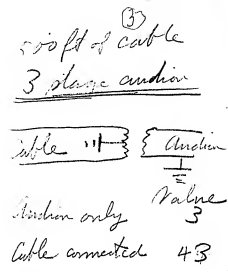 ③
500 ft of cable
3 stage audion
Cable Audion
Value
Audion only 3
Cable connected 43